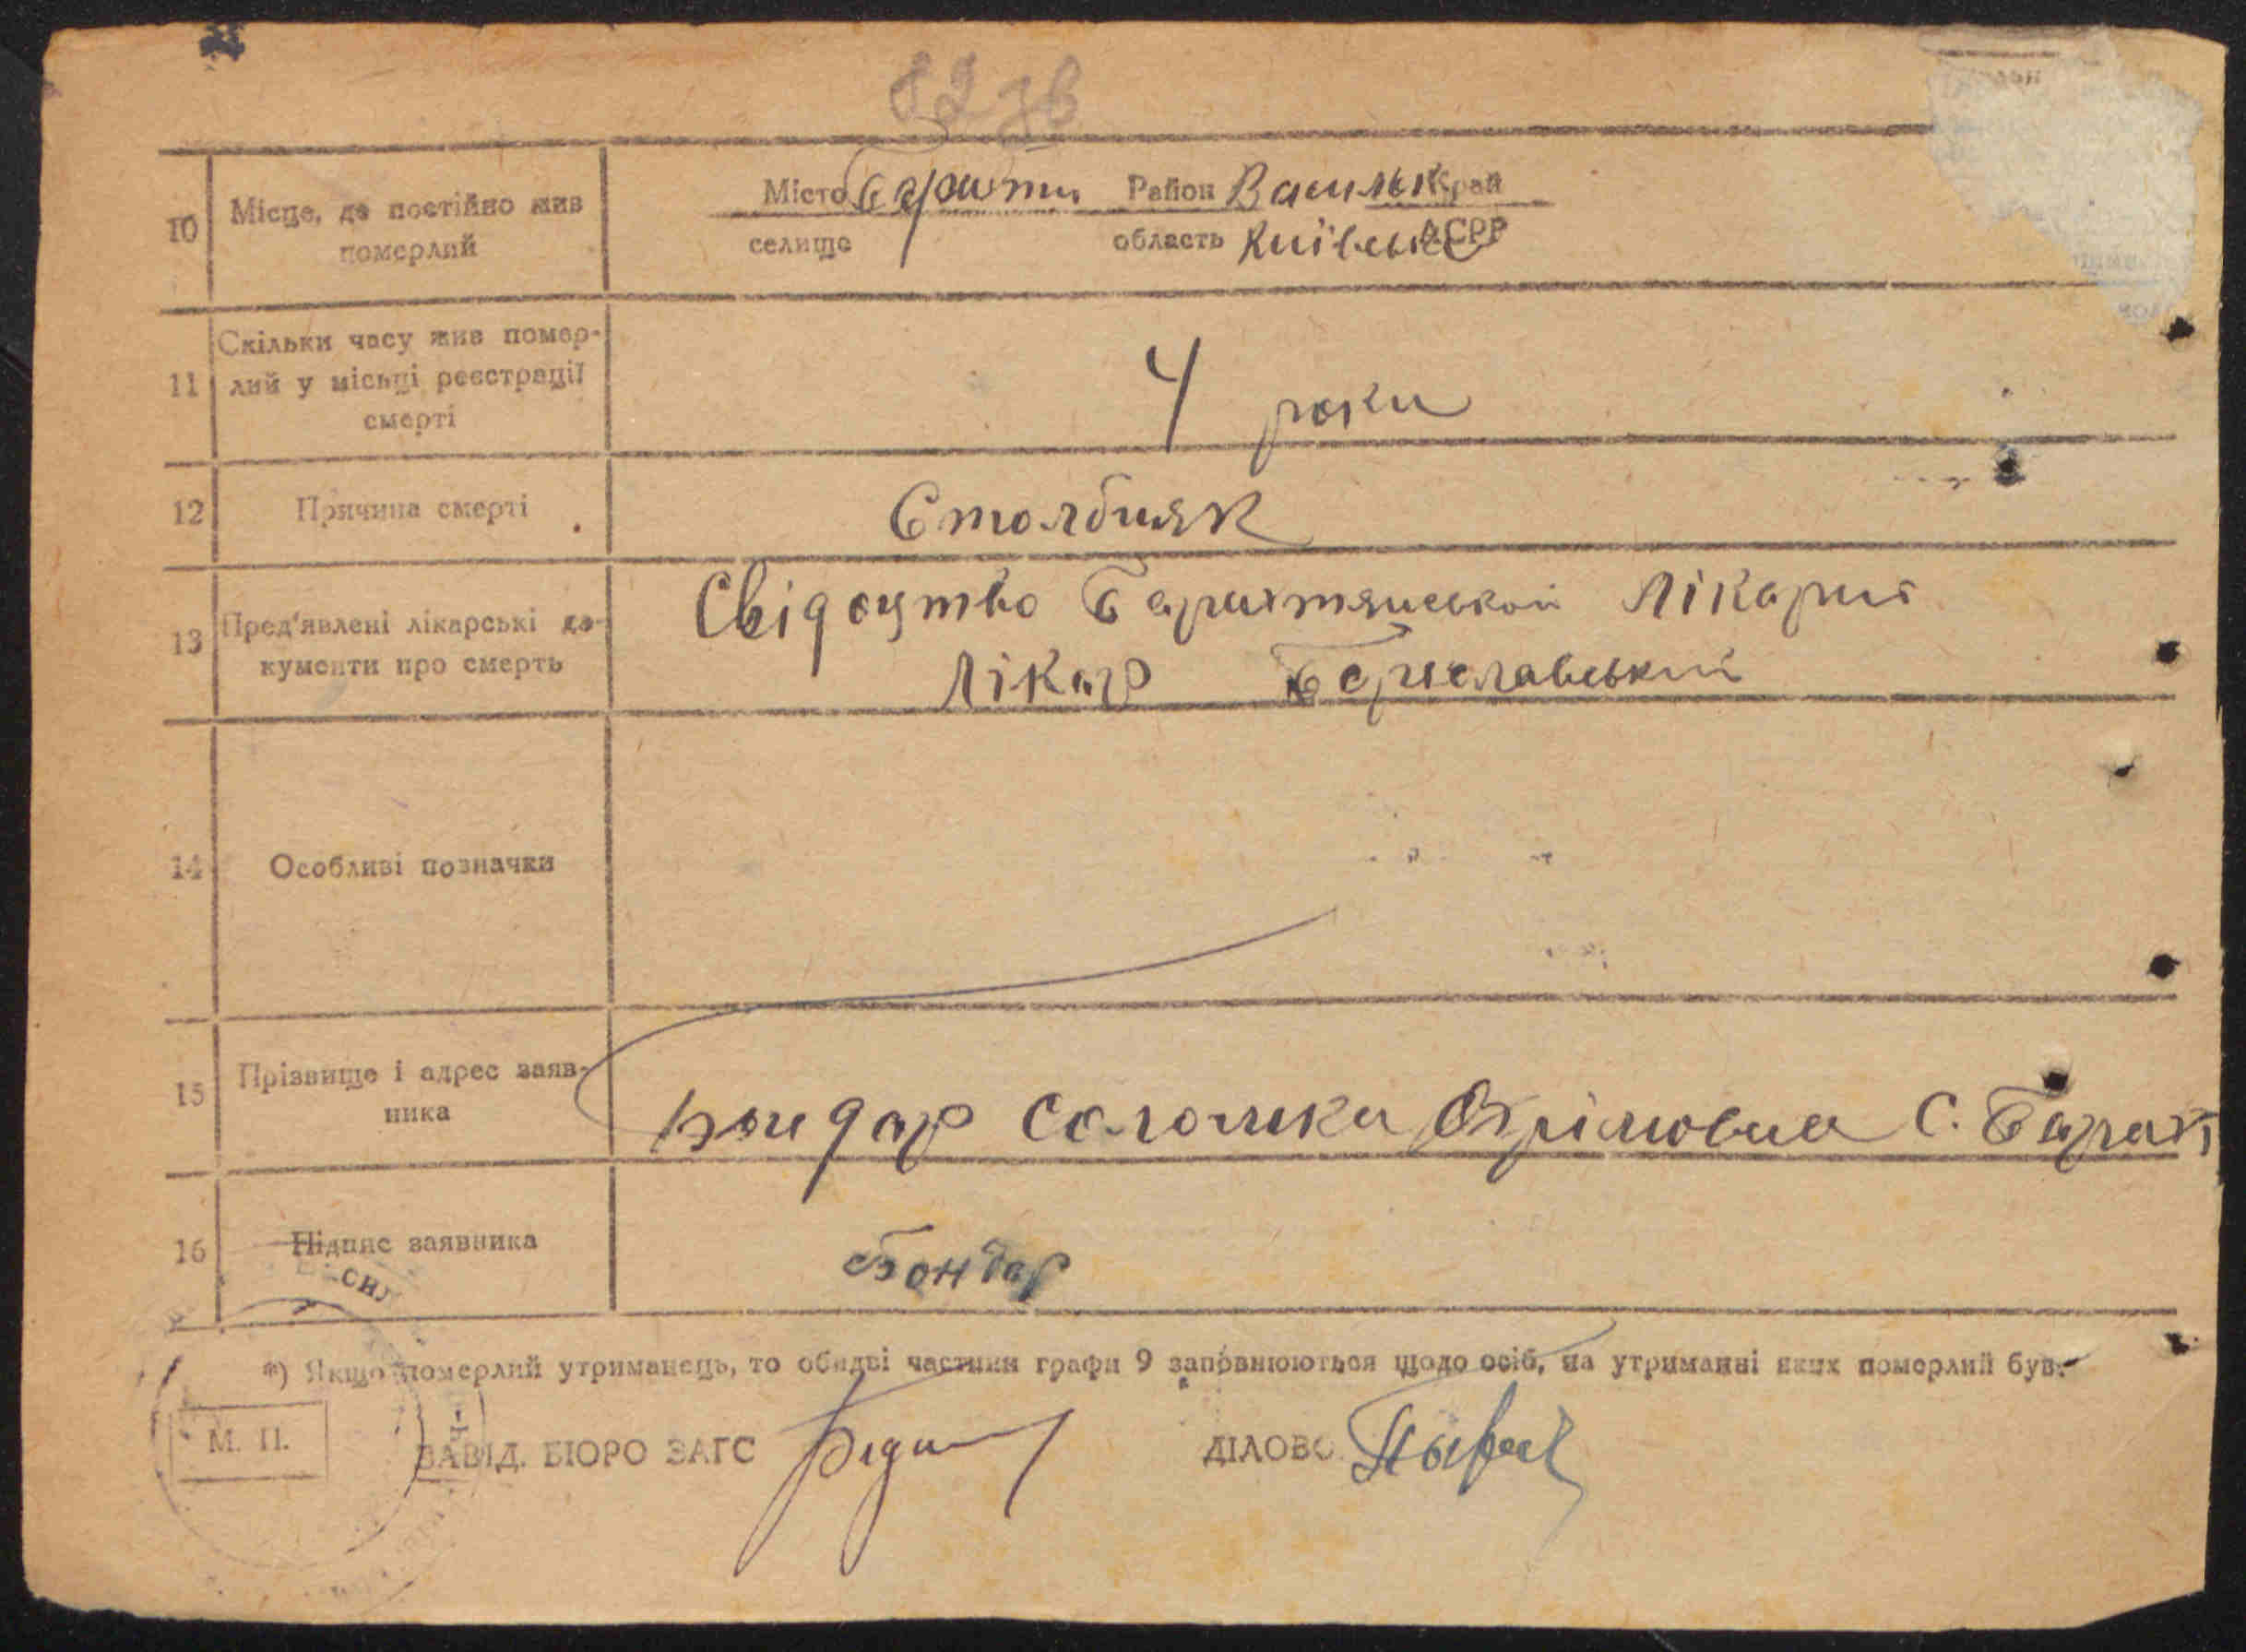 10 Місце, де постійно жив Місто Барахти Район Васильк край
померлий селище область Київська АСРР
11 Скільки часу жив помер-
лий у місьці реєстрації 4 роки
смерті
12 Причина смерті Столбняк
13 Пред'явлені лікарські до- Свідоцтво Барахтянської Лікарні
кументи про смерть Лікар Бериславський
14 Особливі позначки
15 Прізвище і адрес заяв- Бондар Соломка Охрімовна С. Барахт
ника
16 Підпис заявника Бондар
*) Якщо померлий утриманець, то обидві частини графи 9 заповнюються щодо осіб, на утриманні яких померлий був.
М. П. ЗАВІД. БЮРО ЗАГС ДІЛОВО